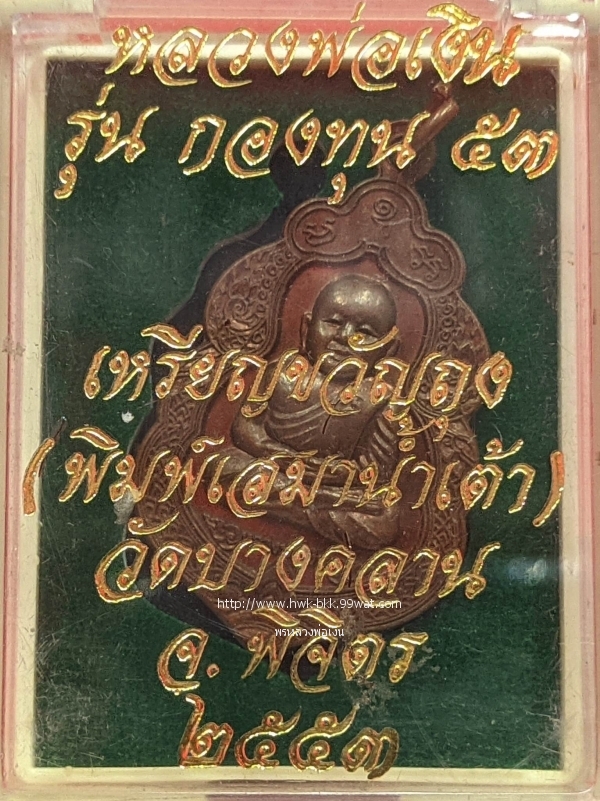 หลวงพ่อเงิน
รุ่น กองทุน ๕๓
เหรียญขวัญถุง
(พิมพ์เสมาน้ำเต้า)
วัดบางคลาน
http://www.hwk-bkk.99wat.com
พรหลวงพ่อเงิน
จ. พิจิตร
๒๕๕๓